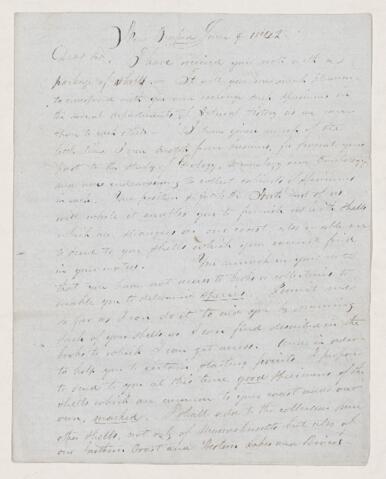 Dear Sir. I have received your note with a
package of shells. It will give me much pleasure
to correspond with you and exchange such specimens in
the several departments of Natural History as we can
them to each other. I have given myself the
little time I can from business, for several years
past to the study of Geology, Mineralogy and Conchology,
and am endeavouring to collect cabinets of specimens
in each. Your position to the South east of us
will enable you to furnish us with shells
which are strangers on our coast also enable me
to send to you shells which you cannot find
in your waters. You remark in your note
that you have not access to books or collections to
enable you to determine species. I will
so far as I can do it to aid you by naming
such of your shells as I can find described in the
books to which I can get access. And in order
to help you to certain starting points, I propose
to send to you at this time good specimens of the
shells which are common to your coast and our
own, marked. I shall add to the collection some
other shells, not only of Massachusetts but also of
our Eastern Coast and Western Lakes and Rivers.